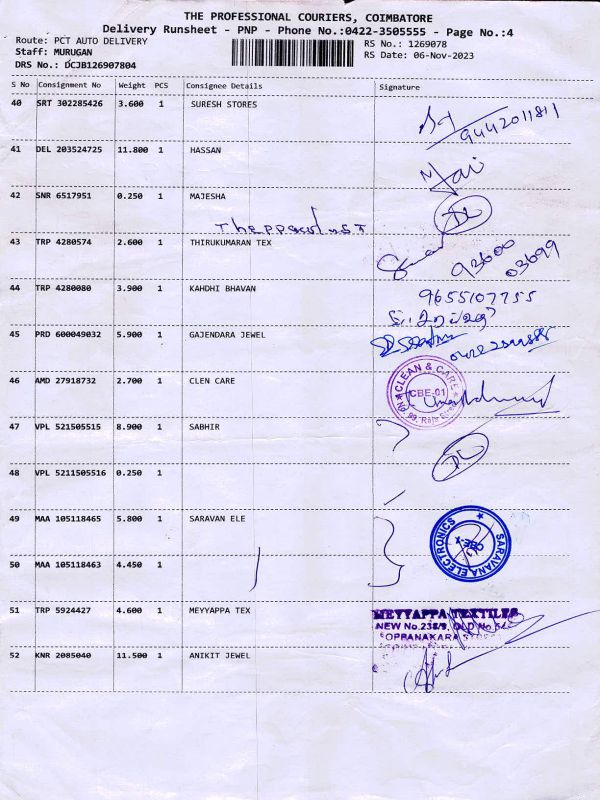 THE PROFESSIONAL COURIERS, COIMBATORE
Delivery Runsheet - PNP - Phone No.:0422-3505555 - Page No.:4
Route: PCT AUTO DELIVERY RS No.: 1269078
Staff: MURUGAN RS Date: 06-Nov-2023
DRS No.: DCJB126907804
S No Consignment No Weight PCS Consignee Details Signature
40 SRT 302285426 3.600 1 SURESH STORES
9442011811
41 DEL 203524725 11.800 1 HASSAN
42 SNR 6517951 0.250 1 MAJESHA
43 TRP 4280574 2.600 1 THIRUKUMARAN TEX
93600
03699
44 TRP 4280080 3.900 1 KAHDHI BHAVAN
9655107755
45 PRD 600049032 5.900 1 GAJENDARA JEWEL
46 AMD 27918732 2.700 1 CLEN CARE
CLEAN & CARE
CBE-01
47 VPL 521505515 8.900 1 SABHIR
48 VPL 5211505516 0.250 1
49 MAA 105118465 5.800 1 SARAVAN ELE
SARAVANA ELECTRONICS
50 MAA 105118463 4.450 1
51 TRP 5924427 4.600 1 MEYYAPPA TEX
MEYYAPPA TEXTILES
NEW No.238/9, OLD No
OPPANAKARA
52 KNR 2085040 11.500 1 ANIKIT JEWEL